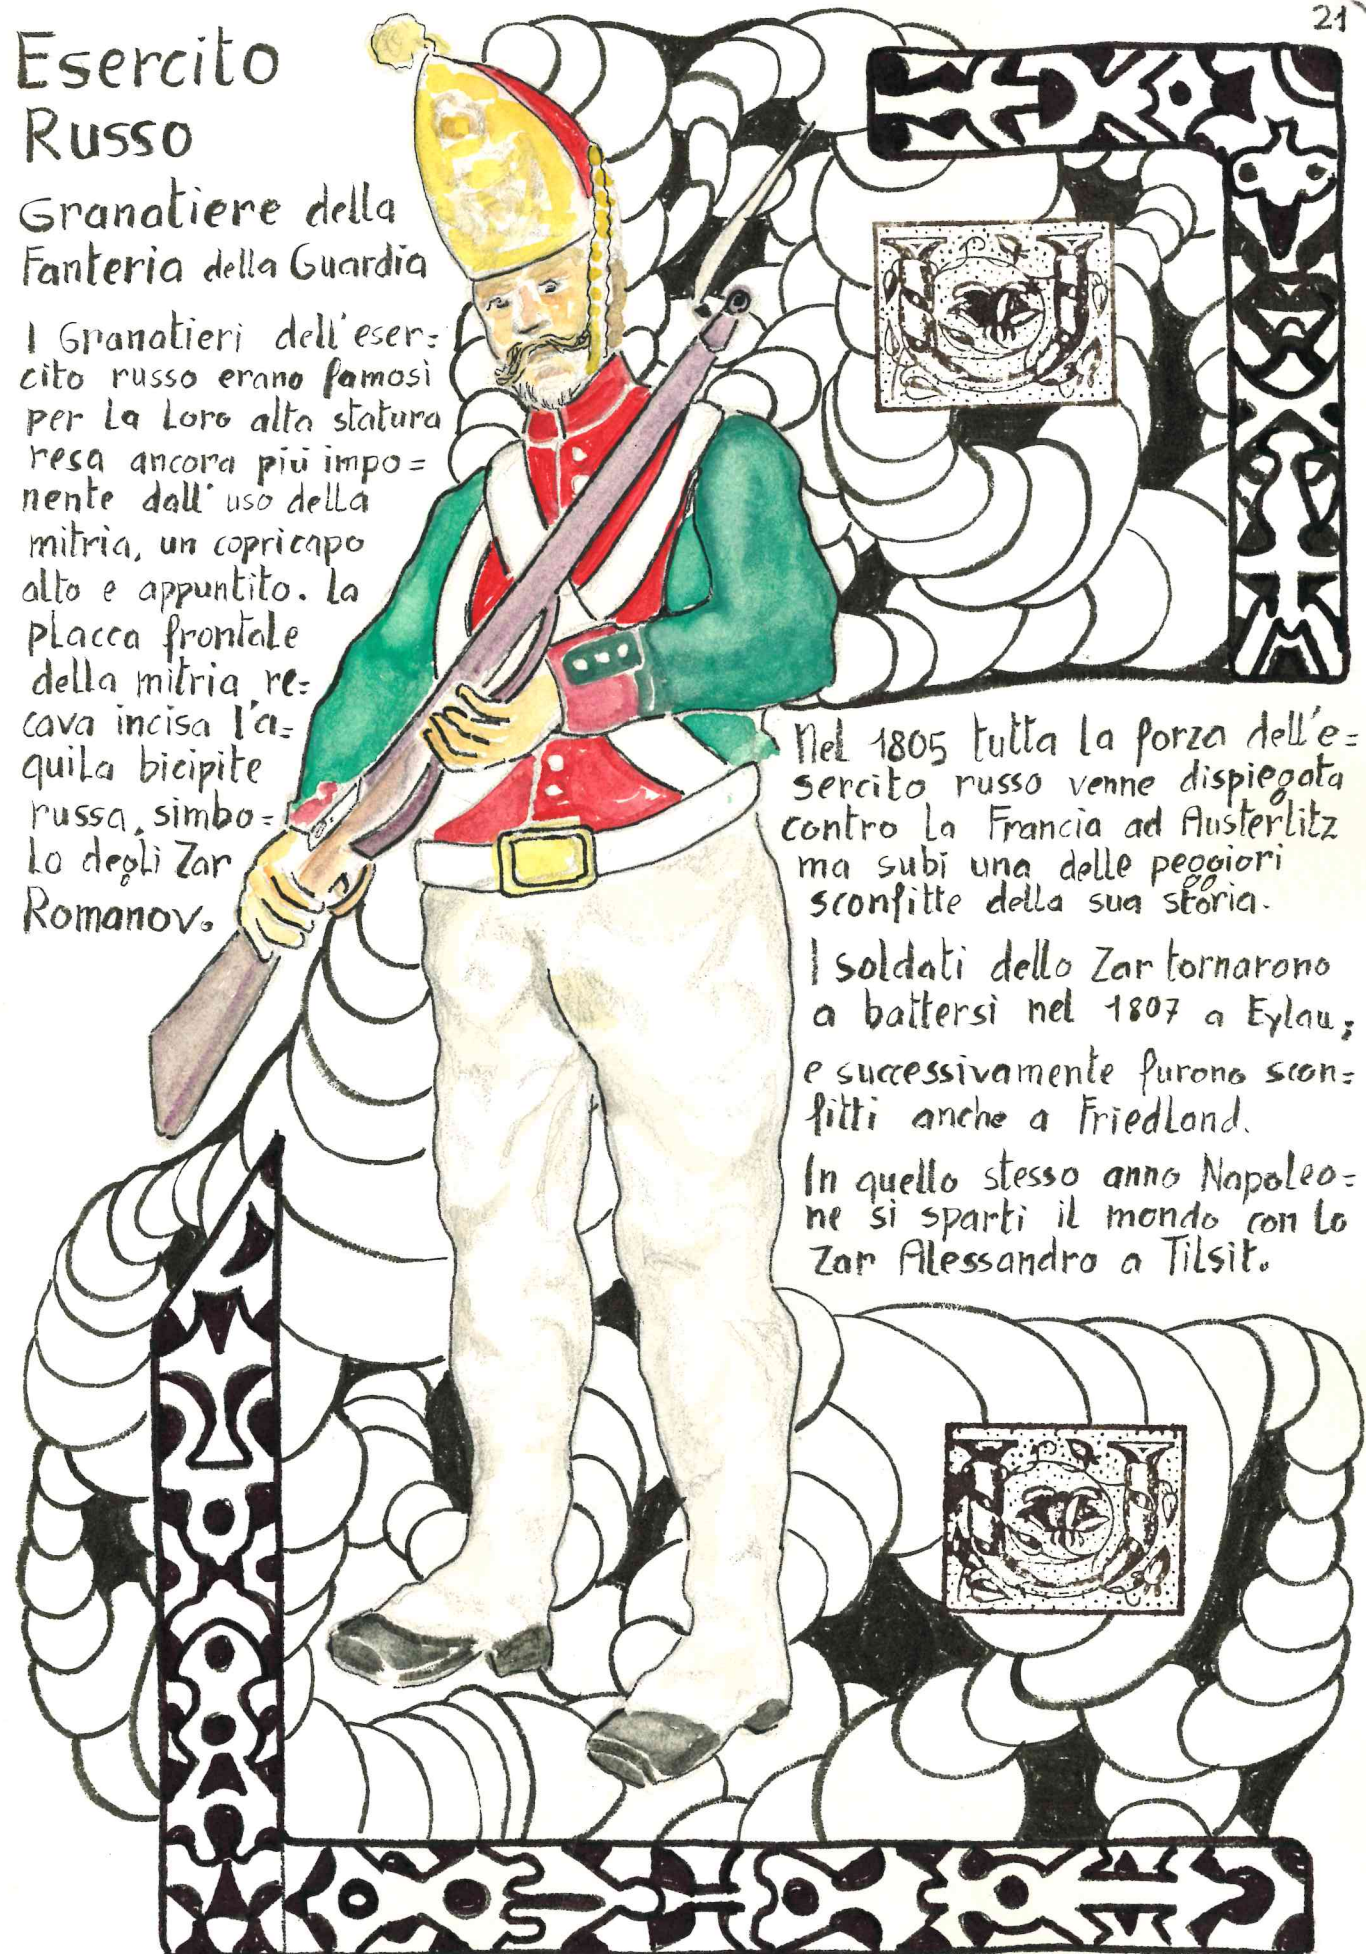 21
Esercito
Russo
Granatiere della
Fanteria della Guardia
I Granatieri dell'eser=
cito russo erano famosi
per la loro alta statura
resa ancora più impo=
nente dall'uso della
mitria, un copricapo
alto e appuntito. La
placca frontale
della mitria re=
cava incisa l'a=
quila bicipite
russa, simbo=
lo degli Zar
Romanov.
Nel 1805 tutta la forza dell'e=
sercito russo venne dispiegata
contro la Francia ad Austerlitz
ma subì una delle peggiori
sconfitte della sua storia.
I soldati dello Zar tornarono
a battersi nel 1807 a Eylau;
e successivamente furono scon=
fitti anche a Friedland.
In quello stesso anno Napoleo=
ne si spartì il mondo con lo
Zar Alessandro a Tilsit.